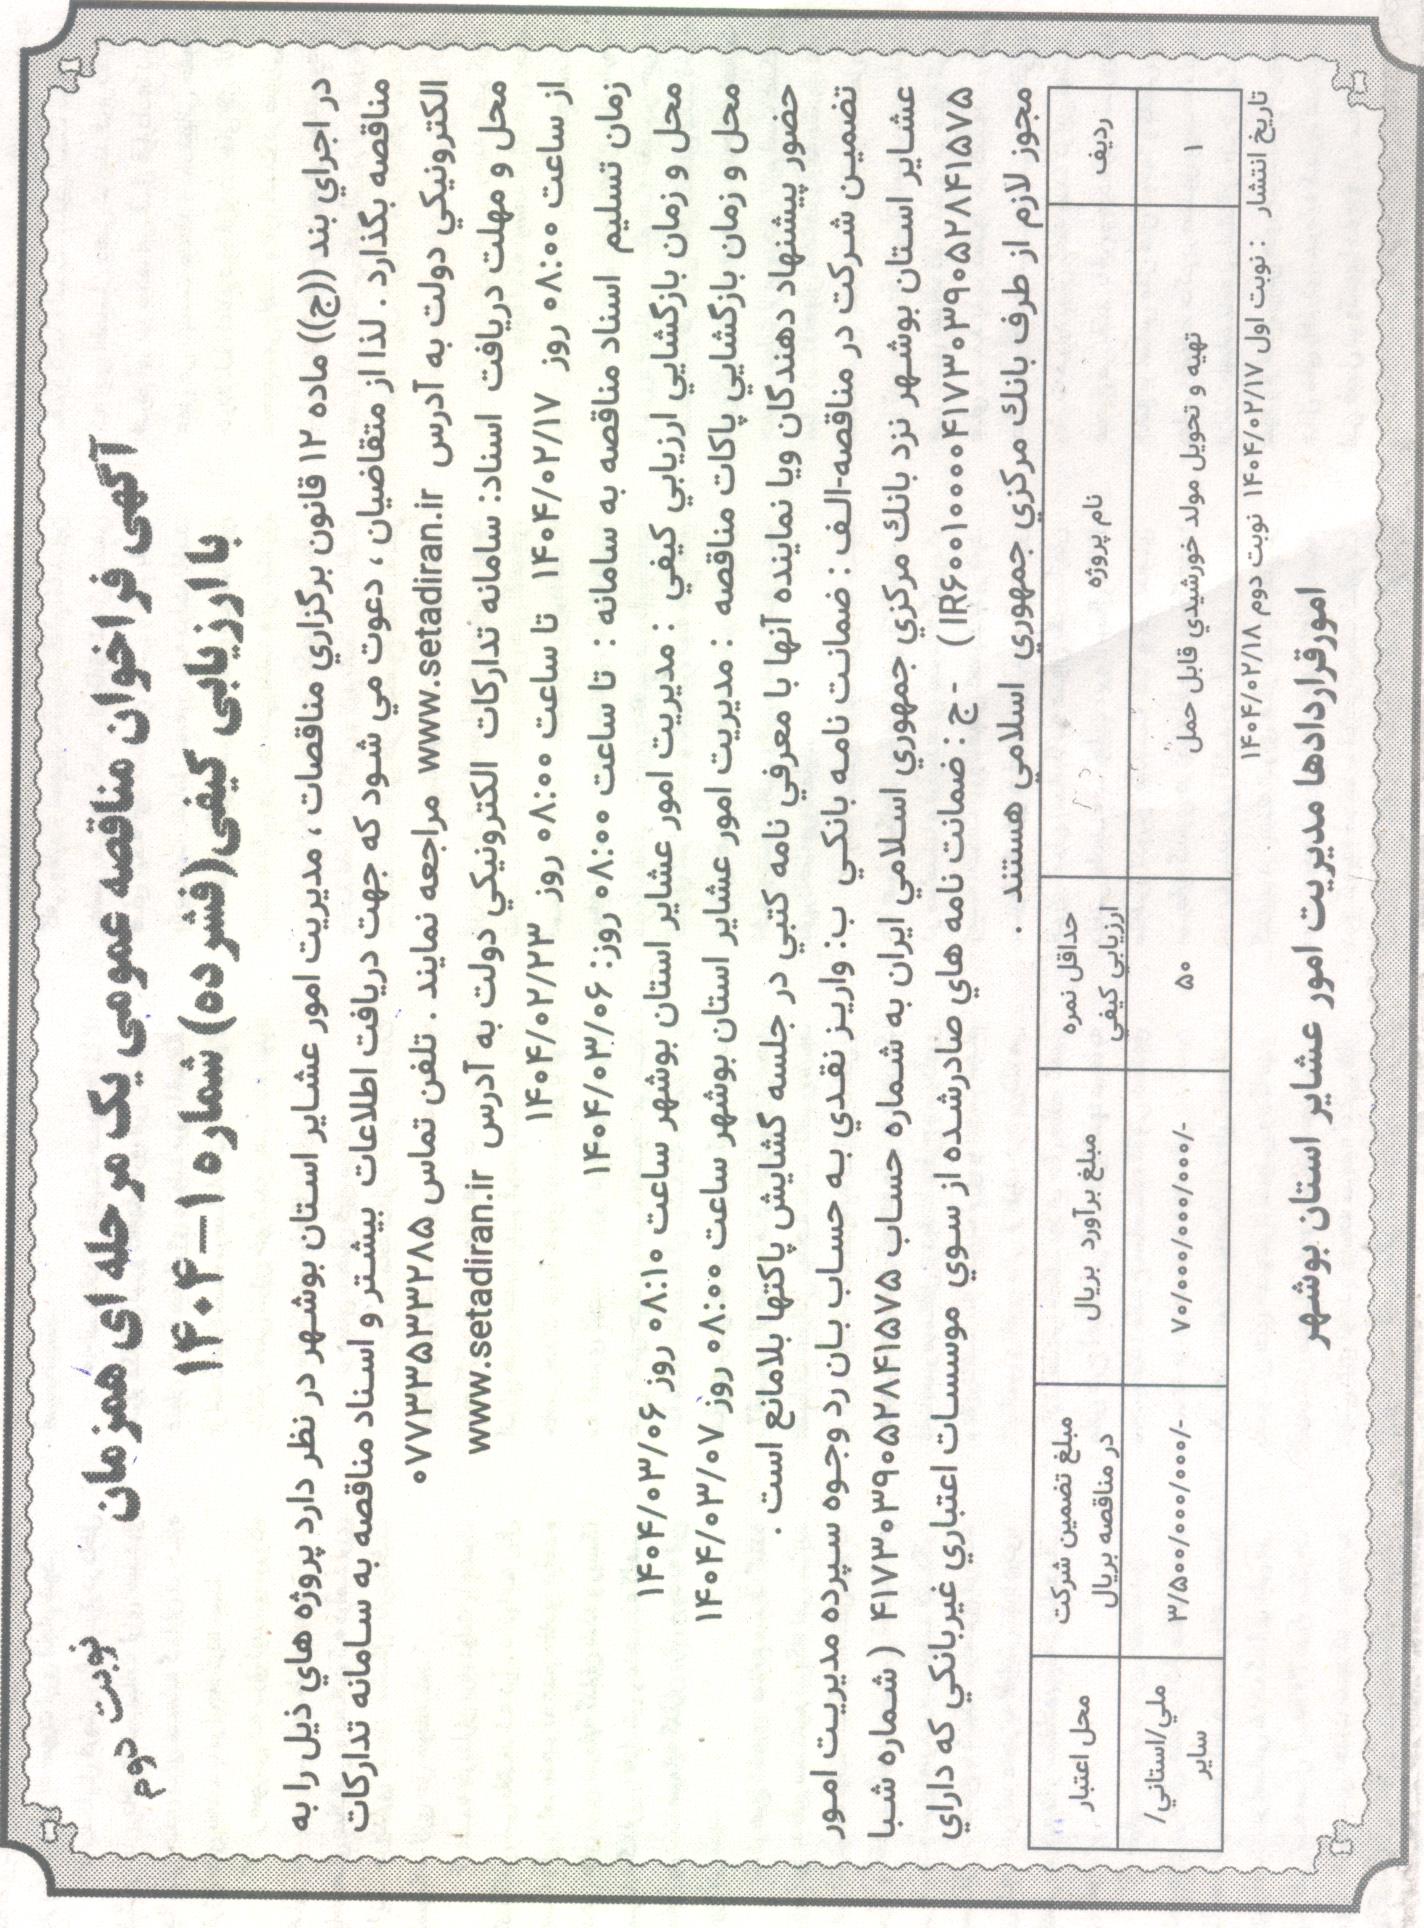 نوبت دوم
آگهی فراخوان مناقصه عمومی یک مرحله ای همزمان
با ارزیابی کیفی(فشرده) شماره ۱-۱۴۰۴
در اجراي بند ((ج)) ماده ۱۲ قانون برگزاري مناقصات ، مديريت امور عشاير استان بوشهر در نظر دارد پروژه هاي ذيل را به
مناقصه بگذارد . لذا از متقاضيان ، دعوت مي شود كه جهت دريافت اطلاعات بيشتر و اسناد مناقصه به سامانه تداركات
الكترونيكي دولت به آدرس www.setadiran.ir مراجعه نمايند . تلفن تماس ۰۷۷۳۳۵۳۳۲۸۵
محل و مهلت دريافت اسناد: سامانه تداركات الكترونيكي دولت به آدرس www.setadiran.ir
از ساعت ۰۸:۰۰ روز ۱۴۰۴/۰۲/۱۷ تا ساعت ۰۸:۰۰ روز ۱۴۰۴/۰۲/۲۳
زمان تسليم اسناد مناقصه به سامانه : تا ساعت ۰۸:۰۰ روز: ۱۴۰۴/۰۳/۰۶
محل و زمان بازگشايي ارزيابي كيفي : مديريت امور عشاير استان بوشهر ساعت ۰۸:۱۰ روز ۱۴۰۴/۰۳/۰۶
محل و زمان بازگشايي پاكات مناقصه : مديريت امور عشاير استان بوشهر ساعت ۰۸:۰۰ روز ۱۴۰۴/۰۳/۰۷
حضور پيشنهاد دهندگان ويا نماينده آنها با معرفي نامه كتبي در جلسه گشايش پاكتها بلامانع است .
تضمين شركت در مناقصه-الف : ضمانت نامه بانكي ب: واريز نقدي به حساب بان رد وجوه سپرده مديريت امور
عشاير استان بوشهر نزد بانك مركزي جمهوري اسلامي ايران به شماره حساب ۴۱۷۳۰۳۹۰۵۲۸۴۱۵۷۵ ( شماره شبا
IR۶۰۰۱۰۰۰۰۴۱۷۳۰۳۹۰۵۲۸۴۱۵۷۵ ) - ج : ضمانت نامه هاي صادرشده از سوي موسسات اعتباري غيربانكي كه داراي
مجوز لازم از طرف بانك مركزي جمهوري اسلامي هستند .
رديف نام پروژه حداقل نمره ارزيابي كيفي مبلغ برآورد بريال مبلغ تضمين شركت در مناقصه بريال محل اعتبار
۱ تهيه و تحويل مولد خورشيدي قابل حمل ۵۰ ۷۰/۰۰۰/۰۰۰/۰۰۰/- ۳/۵۰۰/۰۰۰/۰۰۰/- ملي/استاني/ ساير
تاريخ انتشار : نوبت اول ۱۴۰۴/۰۲/۱۷ نوبت دوم ۱۴۰۴/۰۲/۱۸
امورقراردادها مديريت امور عشاير استان بوشهر